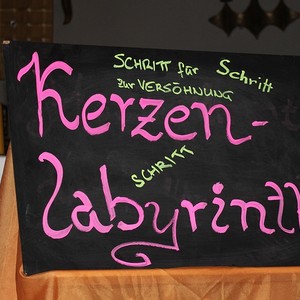 SCHRITT für Schritt
zur VERSÖHNUNG
Kerzen-
SCHRITT
labyrinth